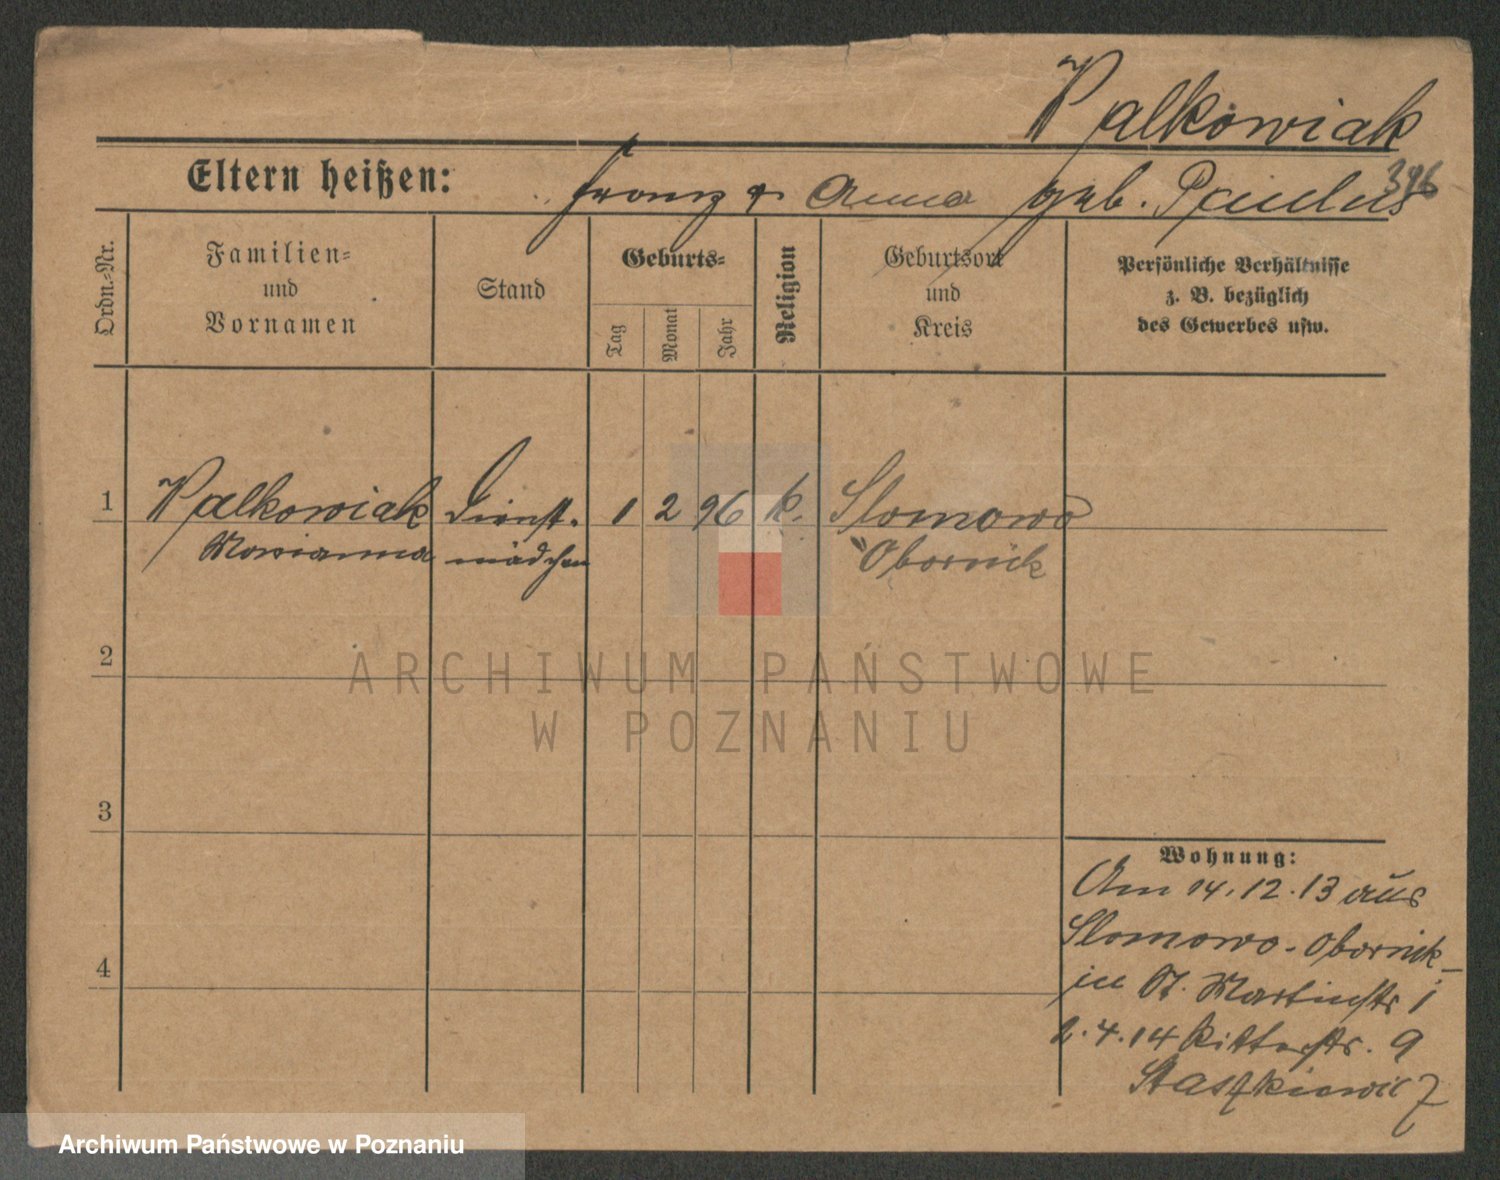 Walkowiak
Eltern heißen: Franz & Anna geb. Paulus
396
Ordn.-Nr.
Familien-
und
Vornamen
Stand
Geburts-
Tag
Monat
Jahr
Religion
Geburtsort
und
Kreis
Persönliche Verhältnisse
z. B. bezüglich
des Gewerbes usw.
1 Walkowiak Dienst- 1 2 96 k. Slomowo
Marianna mädchen Obornick
2
3
4
Wohnung:
Am 14.12.13 aus
Slomowo-Obornick
in St. Martinstr 1
2.4.14 Ritterstr. 9
Staszkiewicz
ARCHIWUM PAŃSTWOWE
W POZNANIU
Archiwum Państwowe w Poznaniu